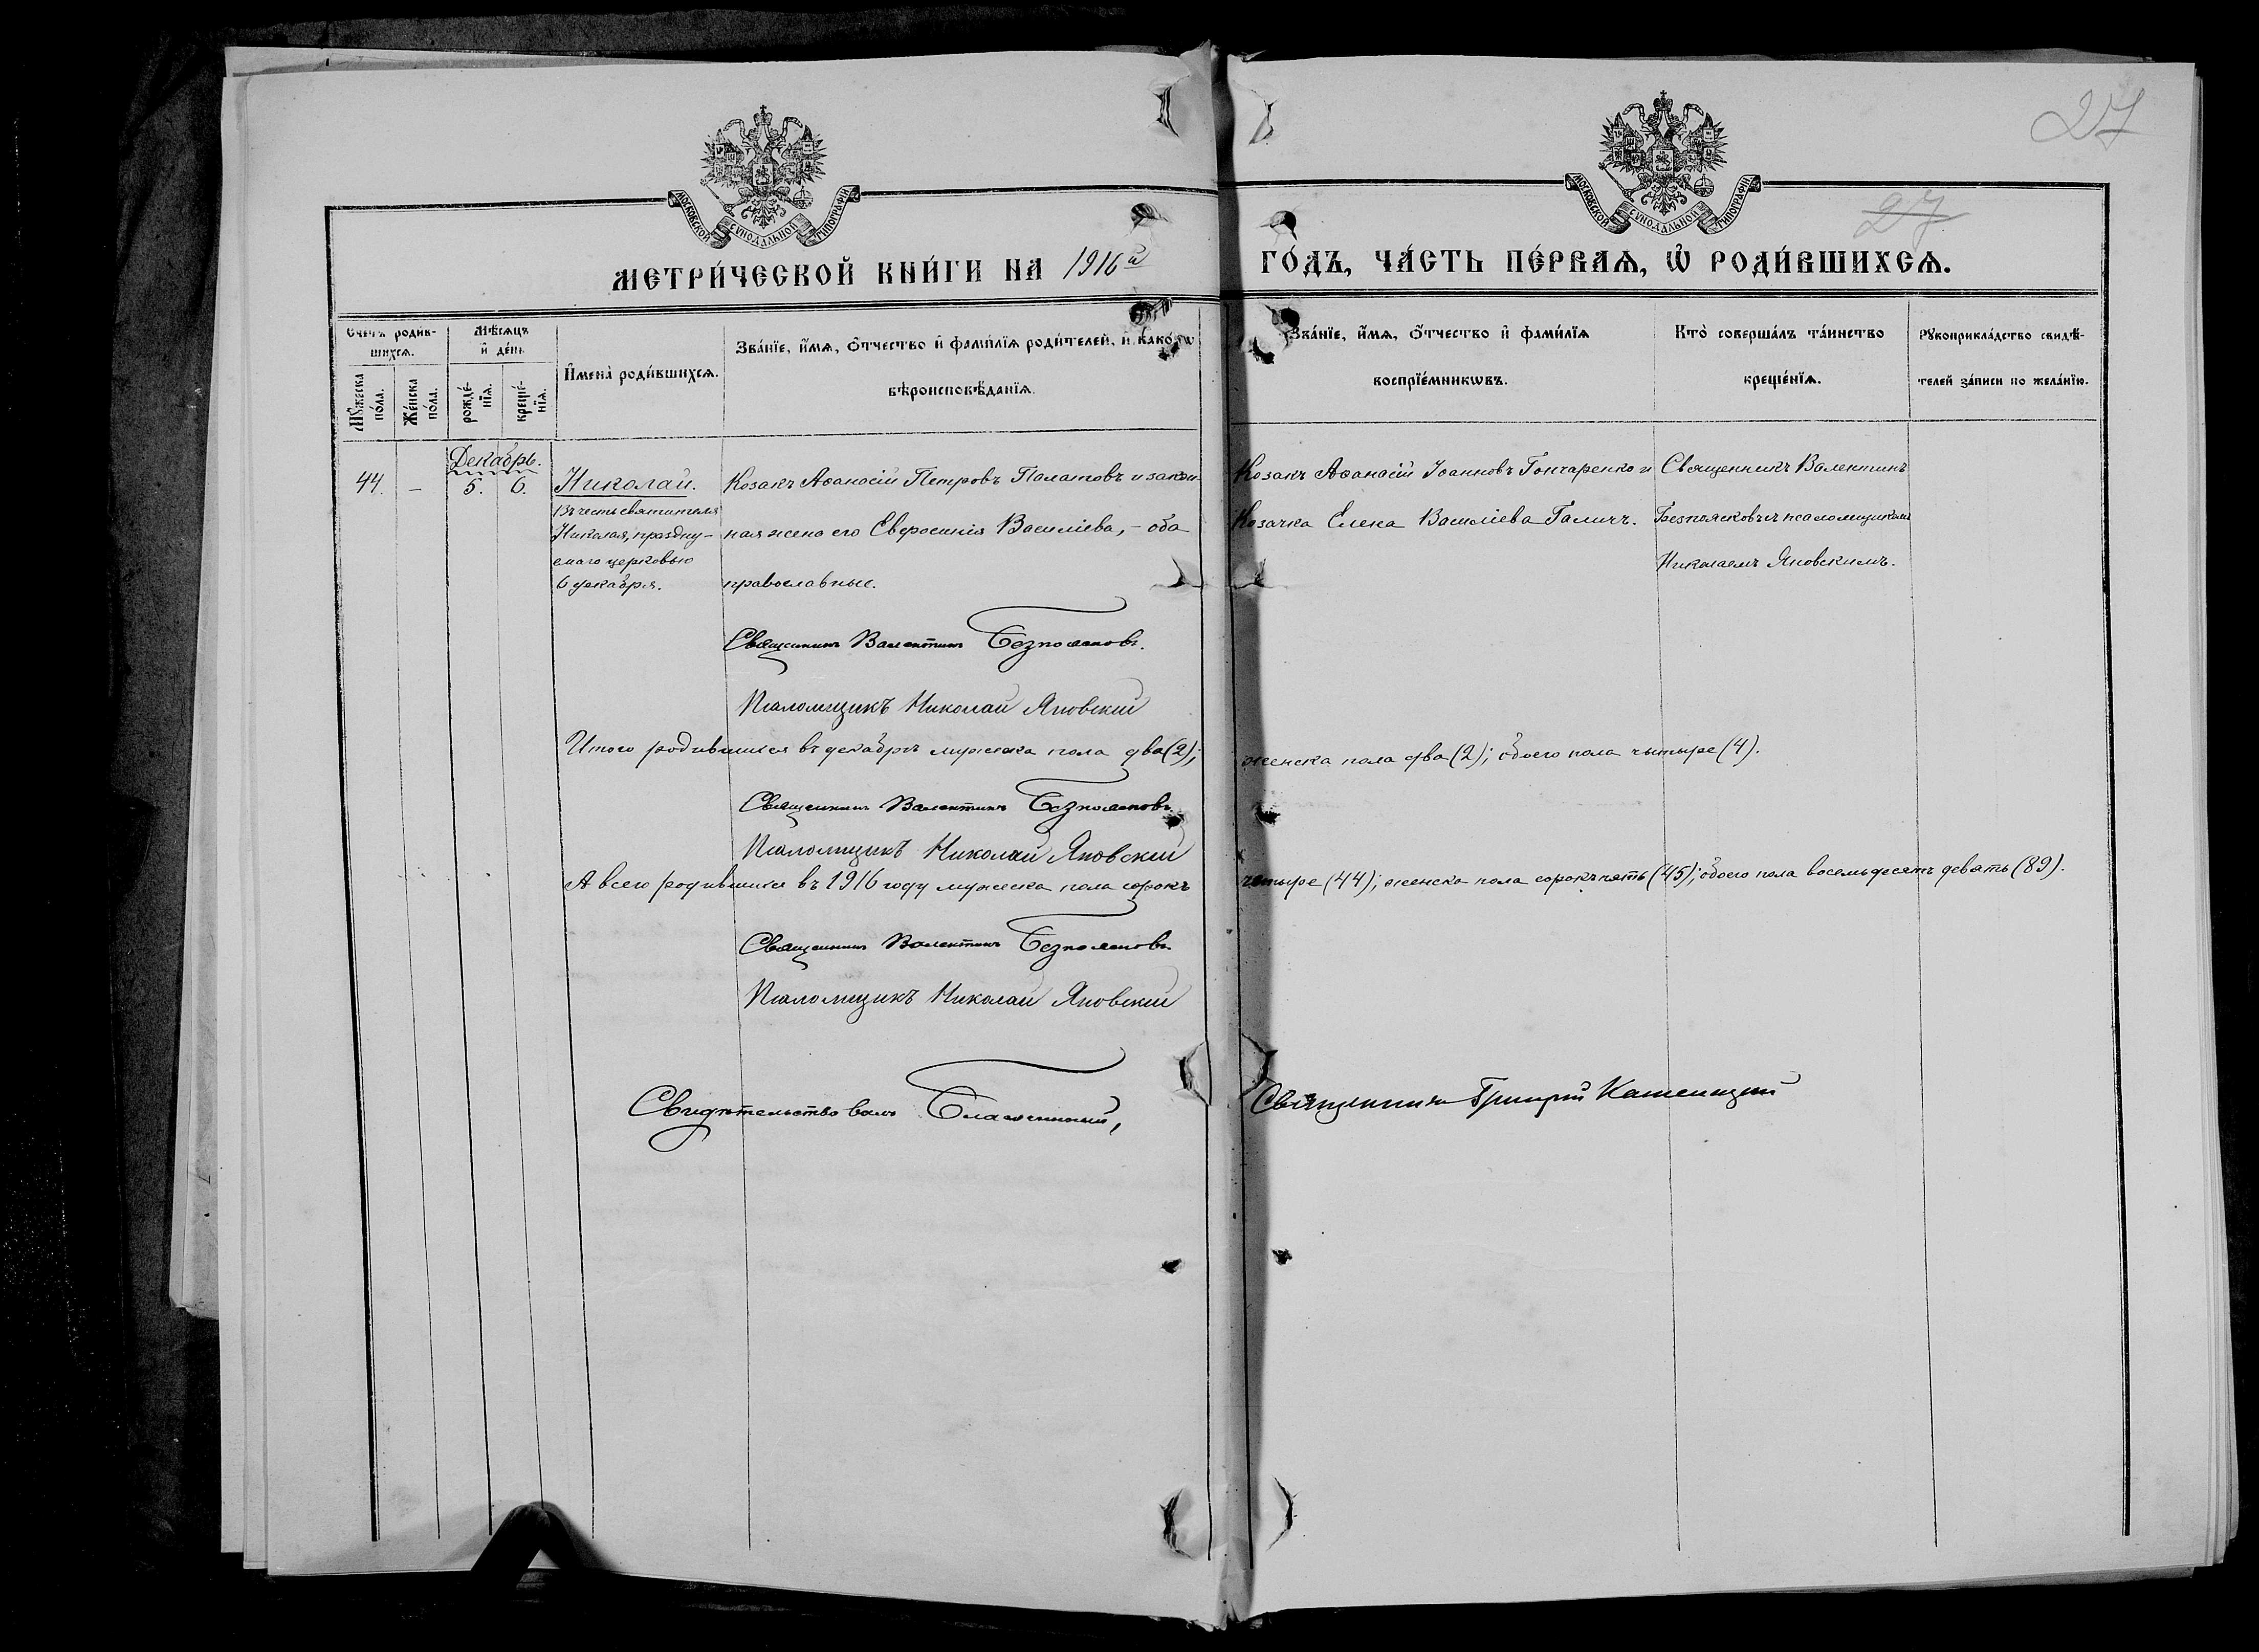 27
27
МОСКОВСКОЙ СУНОДАЛЬНОЙ ТИПОГРАФІИ
МОСКОВСКОЙ СУНОДАЛЬНОЙ ТИПОГРАФІИ
МЕТРИ́ЧЕСКОЙ КНИ́ГИ НА 1916й ГО́ДЪ, ЧА́СТЬ ПЕ́РВАѦ, Ѿ РОДИ́ВШИХСѦ.
Счетъ роди́в-
шихсѧ.
Мꙋ́жеска
по́ла.
Же́нска
по́ла.
Мѣ́сѧцъ
и҆ де́нь
рожде́-
нїѧ.
креще́-
нїѧ.
И҆мена̀ роди́вшихсѧ.
Зва́нїе, и҆́мѧ, ѻ҆́тчество и҆ фами́лїѧ роди́телей, и҆ како́гѡ
вѣроисповѣ́данїѧ.
Зва́нїе, и҆́мѧ, ѻ҆́тчество и҆ фами́лїѧ
воспрїе́мникѡвъ.
Кто̀ соверша́лъ та́инство
креще́нїѧ.
Рꙋкоприкла́дство свидѣ́-
телей за́писи по жела́нїю.
Декабрь.
44. – 5. 6. Николай.
Въ честь святителя
Николая, праздну-
емаго церковью
6 декабря.
Козакъ Аѳанасій Петровъ Палатовъ и закон-
ная жена его Евфросинія Василіева, – оба
православные.
Козакъ Аѳанасій Іоанновъ Гончаренко и
Козачка Елена Василіева Галичъ.
Священникъ Валентинъ
Безпоясковъ съ псаломщикомъ
Николаемъ Яновскимъ.
Священникъ Валентинъ Безпоясковъ.
Псаломщикъ Николай Яновский
Итого родившихся въ декабрѣ мужеска пола два (2); женска пола два (2); обоего пола четыре (4).
Священникъ Валентинъ Безпоясковъ.
Псаломщикъ Николай Яновский
А всего родившихся въ 1916 году мужеска пола сорокъ четыре (44); женска пола сорокъ пять (45); обоего пола восемьдесятъ девять (89).
Священникъ Валентинъ Безпоясковъ.
Псаломщикъ Николай Яновский
Свидѣтельствовалъ Благочинный, Священникъ Григорій